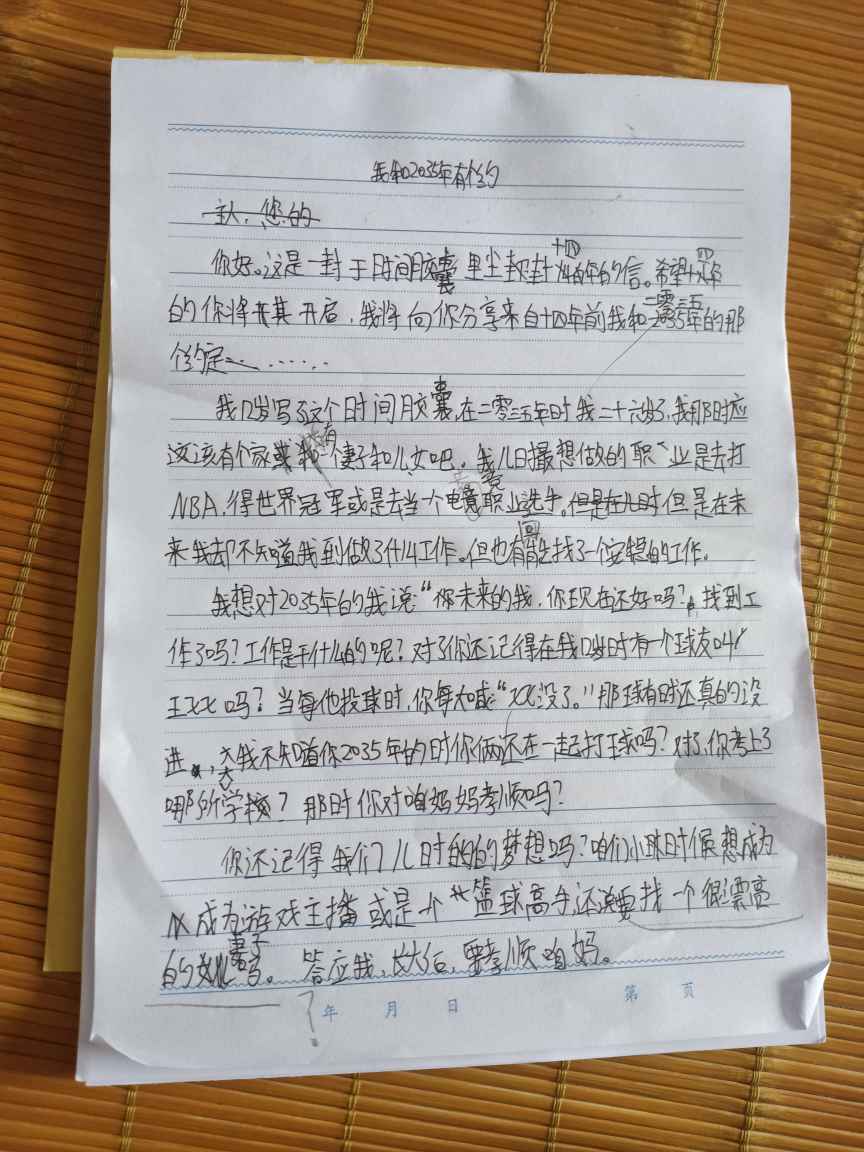 我和2035年有个约
主人，您的
你好。这是一封于时间胶囊里尘封十四年的信。希望十四年
的你将其开启，我将向你分享来自十四年前我和二零三五年的那
个约定……
我12岁写了这个时间胶囊，在二零三五年时我二十六岁了，我那时应
该该有个家或有个妻子和儿女吧。我儿时最想做的职业是去打
NBA，得世界冠军或是去当个电竞职业选手。但是在儿时但是在未
来我却不知道我到做了什么工作。但也有可能找了一个安稳的工作。
我想对2035年的我说“你未来的我，你现在还好吗？找到工
作了吗？工作是干什么的呢？对了你还记得在我12岁时有一个球友叫
王XX吗？当每他投球时，你每大喊“XX没了。”那球有时还真的没
进，我不知道你2035年的时你俩还在一起打球吗？对了，你考上了
哪所大学？那时你对咱妈妈孝顺吗？
你还记得我们儿时的的梦想吗？咱们小时候想成为
成为游戏主播或是个篮球高手还说要找一个很漂亮
的妻子吗。答应我，长大后，要孝顺咱妈。
？
年 月 日 第 页